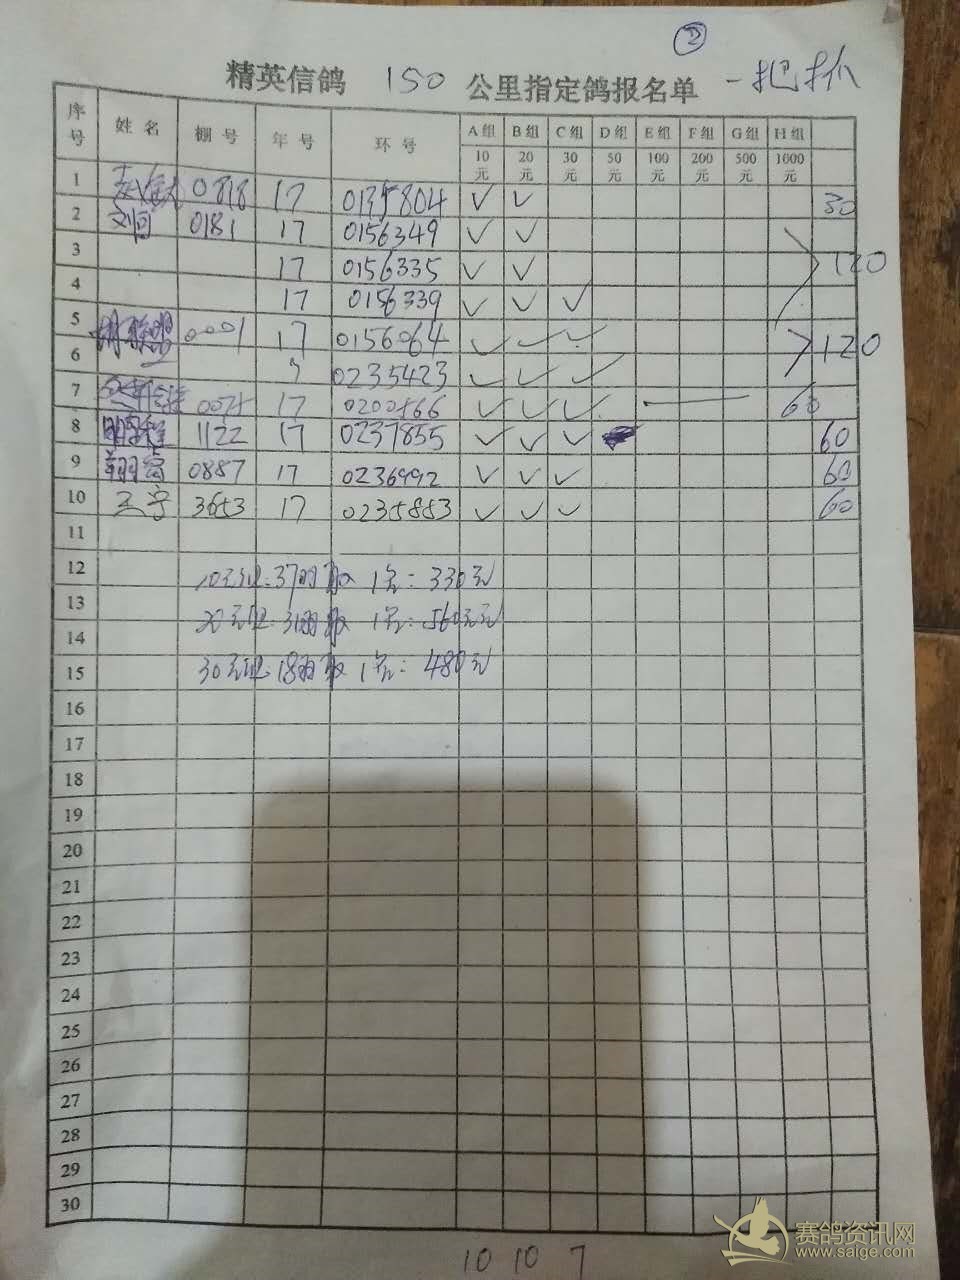 ②
精英信鸽 150 公里指定鸽报名单 一把抓
序号 姓名 棚号 年号 环号 A组 B组 C组 D组 E组 F组 G组 H组
10元 20元 30元 50元 100元 200元 500元 1000元
1 0818 17 0135804 ✓ ✓ 30
2 刘同 0181 17 0156349 ✓ ✓
3 17 0156335 ✓ ✓ 120
4 17 0156339 ✓ ✓ ✓
5 0001 17 0156064 ✓ ✓ ✓ 120
6 0235423 ✓ ✓ ✓
7 17 0200566 ✓ ✓ ✓ 60
8 1122 17 0237855 ✓ ✓ ✓ 60
9 0887 17 0236992 ✓ ✓ ✓ 60
10 王宇 3653 17 0235853 ✓ ✓ ✓ 60
11
12 10元组:37羽取1名:330元
13 20元组:31羽取1名:560元
14
15 30元组:18羽取1名:480元
16
17
18
19
20
21
22
23
24
25
26
27
28
29
30
10 10 7
赛鸽资讯网
www.saige.com